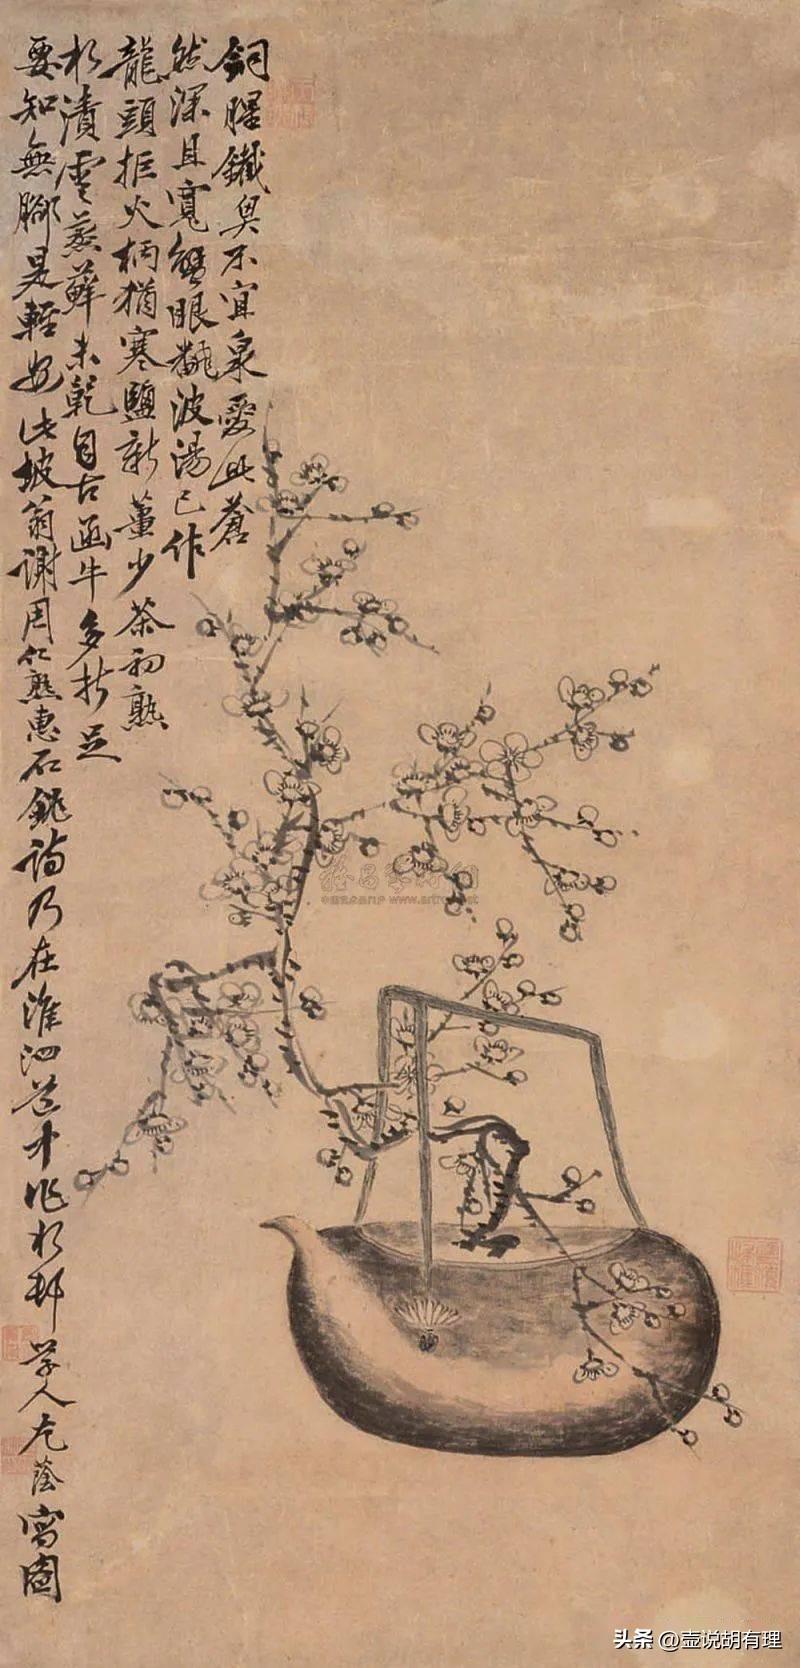 銅腥鐵臭不宜泉愛此蒼
然深且寬蟹眼翻波湯已作
龍頭拒火柄猶寒鹽新薑少茶初熟
水漬雲蒸蘚未乾自古函牛多折足
要知無腳是輕安此坡翁謝周仁熟惠石銚詩乃在淮泗道中作水邨學人尤蔭寫圖
头条 @壶说胡有理